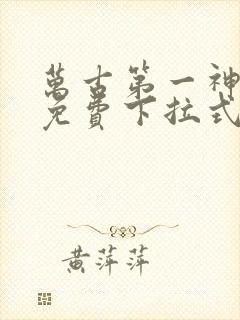 萬古第一神
免費下拉式
黃萍萍